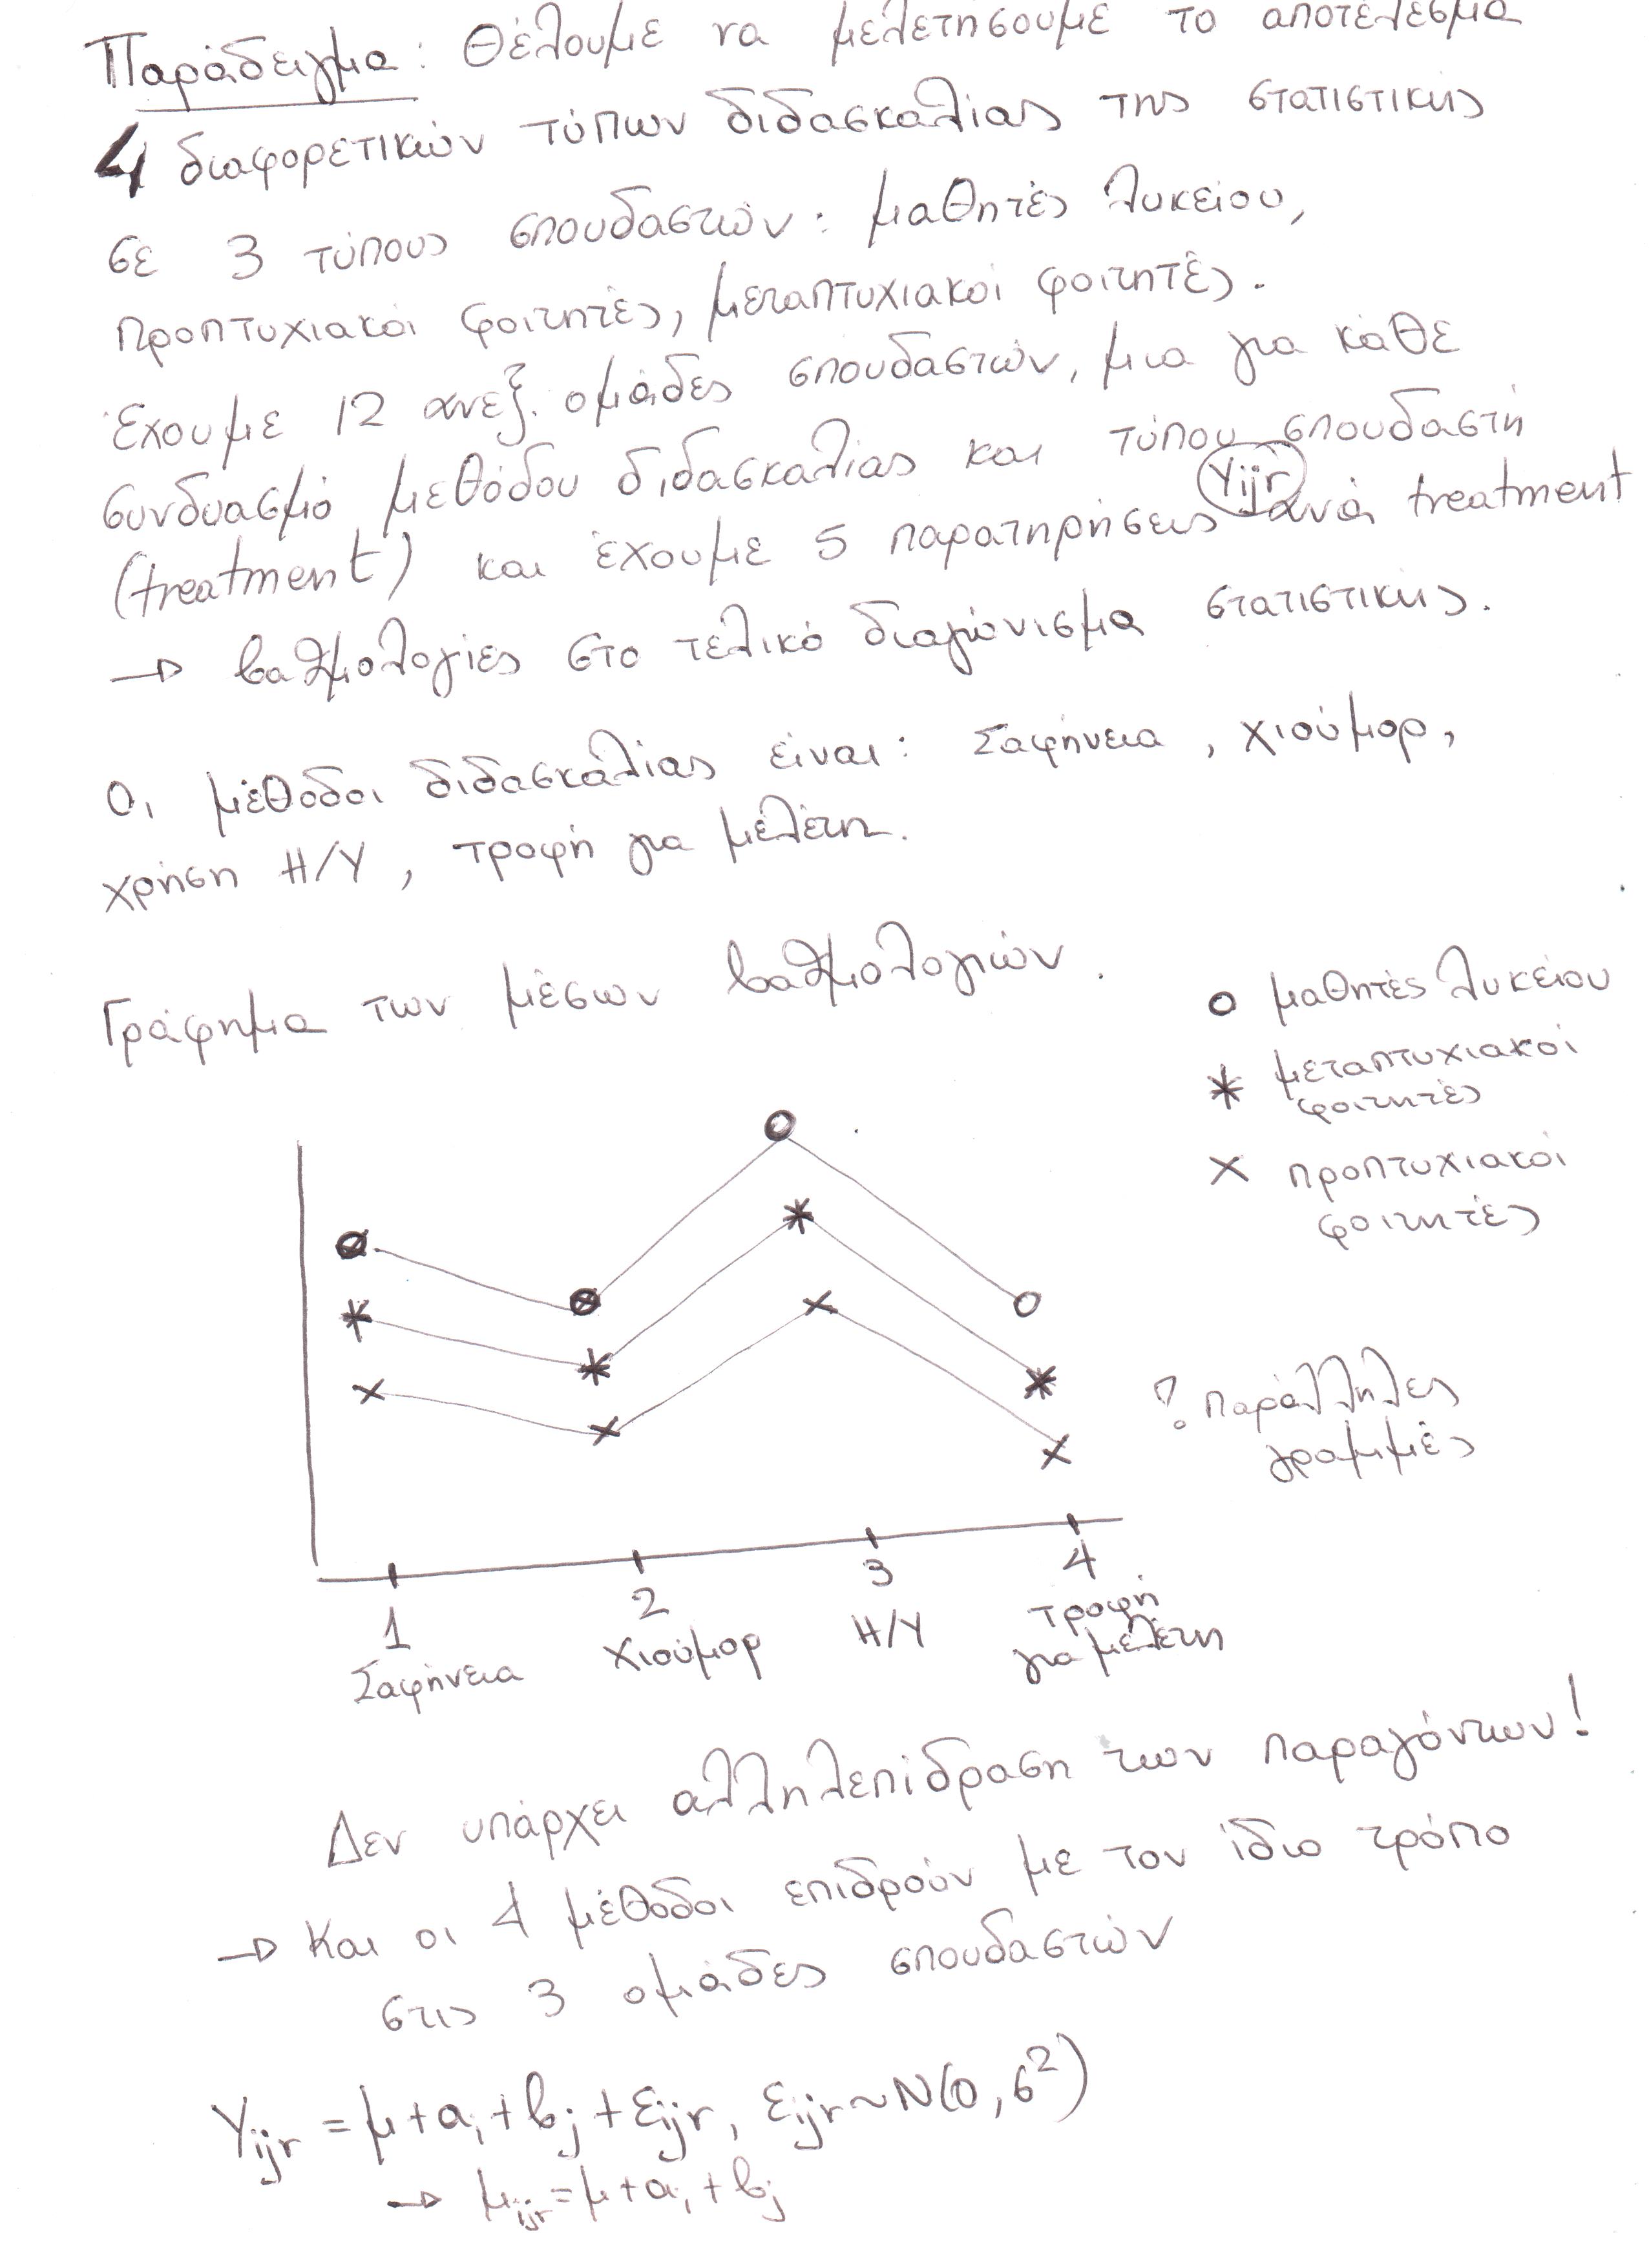 Παράδειγμα: Θέλουμε να μελετήσουμε το αποτέλεσμα
4 διαφορετικών τύπων διδασκαλίας της στατιστικής
σε 3 τύπους σπουδαστών: μαθητές λυκείου,
προπτυχιακοί φοιτητές, μεταπτυχιακοί φοιτητές.
Έχουμε 12 ανεξ. ομάδες σπουδαστών, μια για κάθε
συνδυασμό μεθόδου διδασκαλίας και τύπου σπουδαστή
Yijr
(treatment) και έχουμε 5 παρατηρήσεις ανά treatment
→ βαθμολογίες στο τελικό διαγώνισμα στατιστικής.
Οι μέθοδοι διδασκαλίας είναι: Σαφήνεια, χιούμορ,
χρήση Η/Υ, τροφή για μελέτη.
Γράφημα των μέσων βαθμολογιών.
ο μαθητές λυκείου
* μεταπτυχιακοί
φοιτητές
× προπτυχιακοί
φοιτητές
? Παράλληλες
γραμμές
1 2 3 4
Σαφήνεια Χιούμορ Η/Υ τροφή
για μελέτη
Δεν υπάρχει αλληλεπίδραση των παραγόντων!
→ Και οι 4 μέθοδοι επιδρούν με τον ίδιο τρόπο
στις 3 ομάδες σπουδαστών
Yijr = μ + ai + bj + εijr, εijr ~ N(0, σ²)
→ μijr = μ + ai + bj